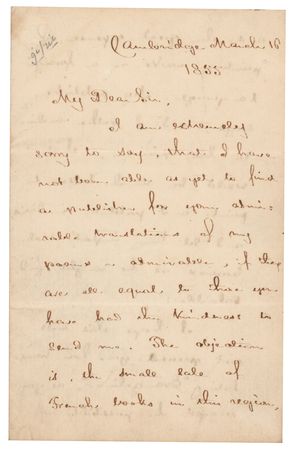 Cambridge March 16
1855
My Dear Sir,
I am extremely
sorry to say, that I have
not been able as yet to find
a publisher for your admi-
rable translations of my
poems admirable, if they
are all equal to those you
have had the kindness to
send me. The objection
is, the small sale of
French books in this region,